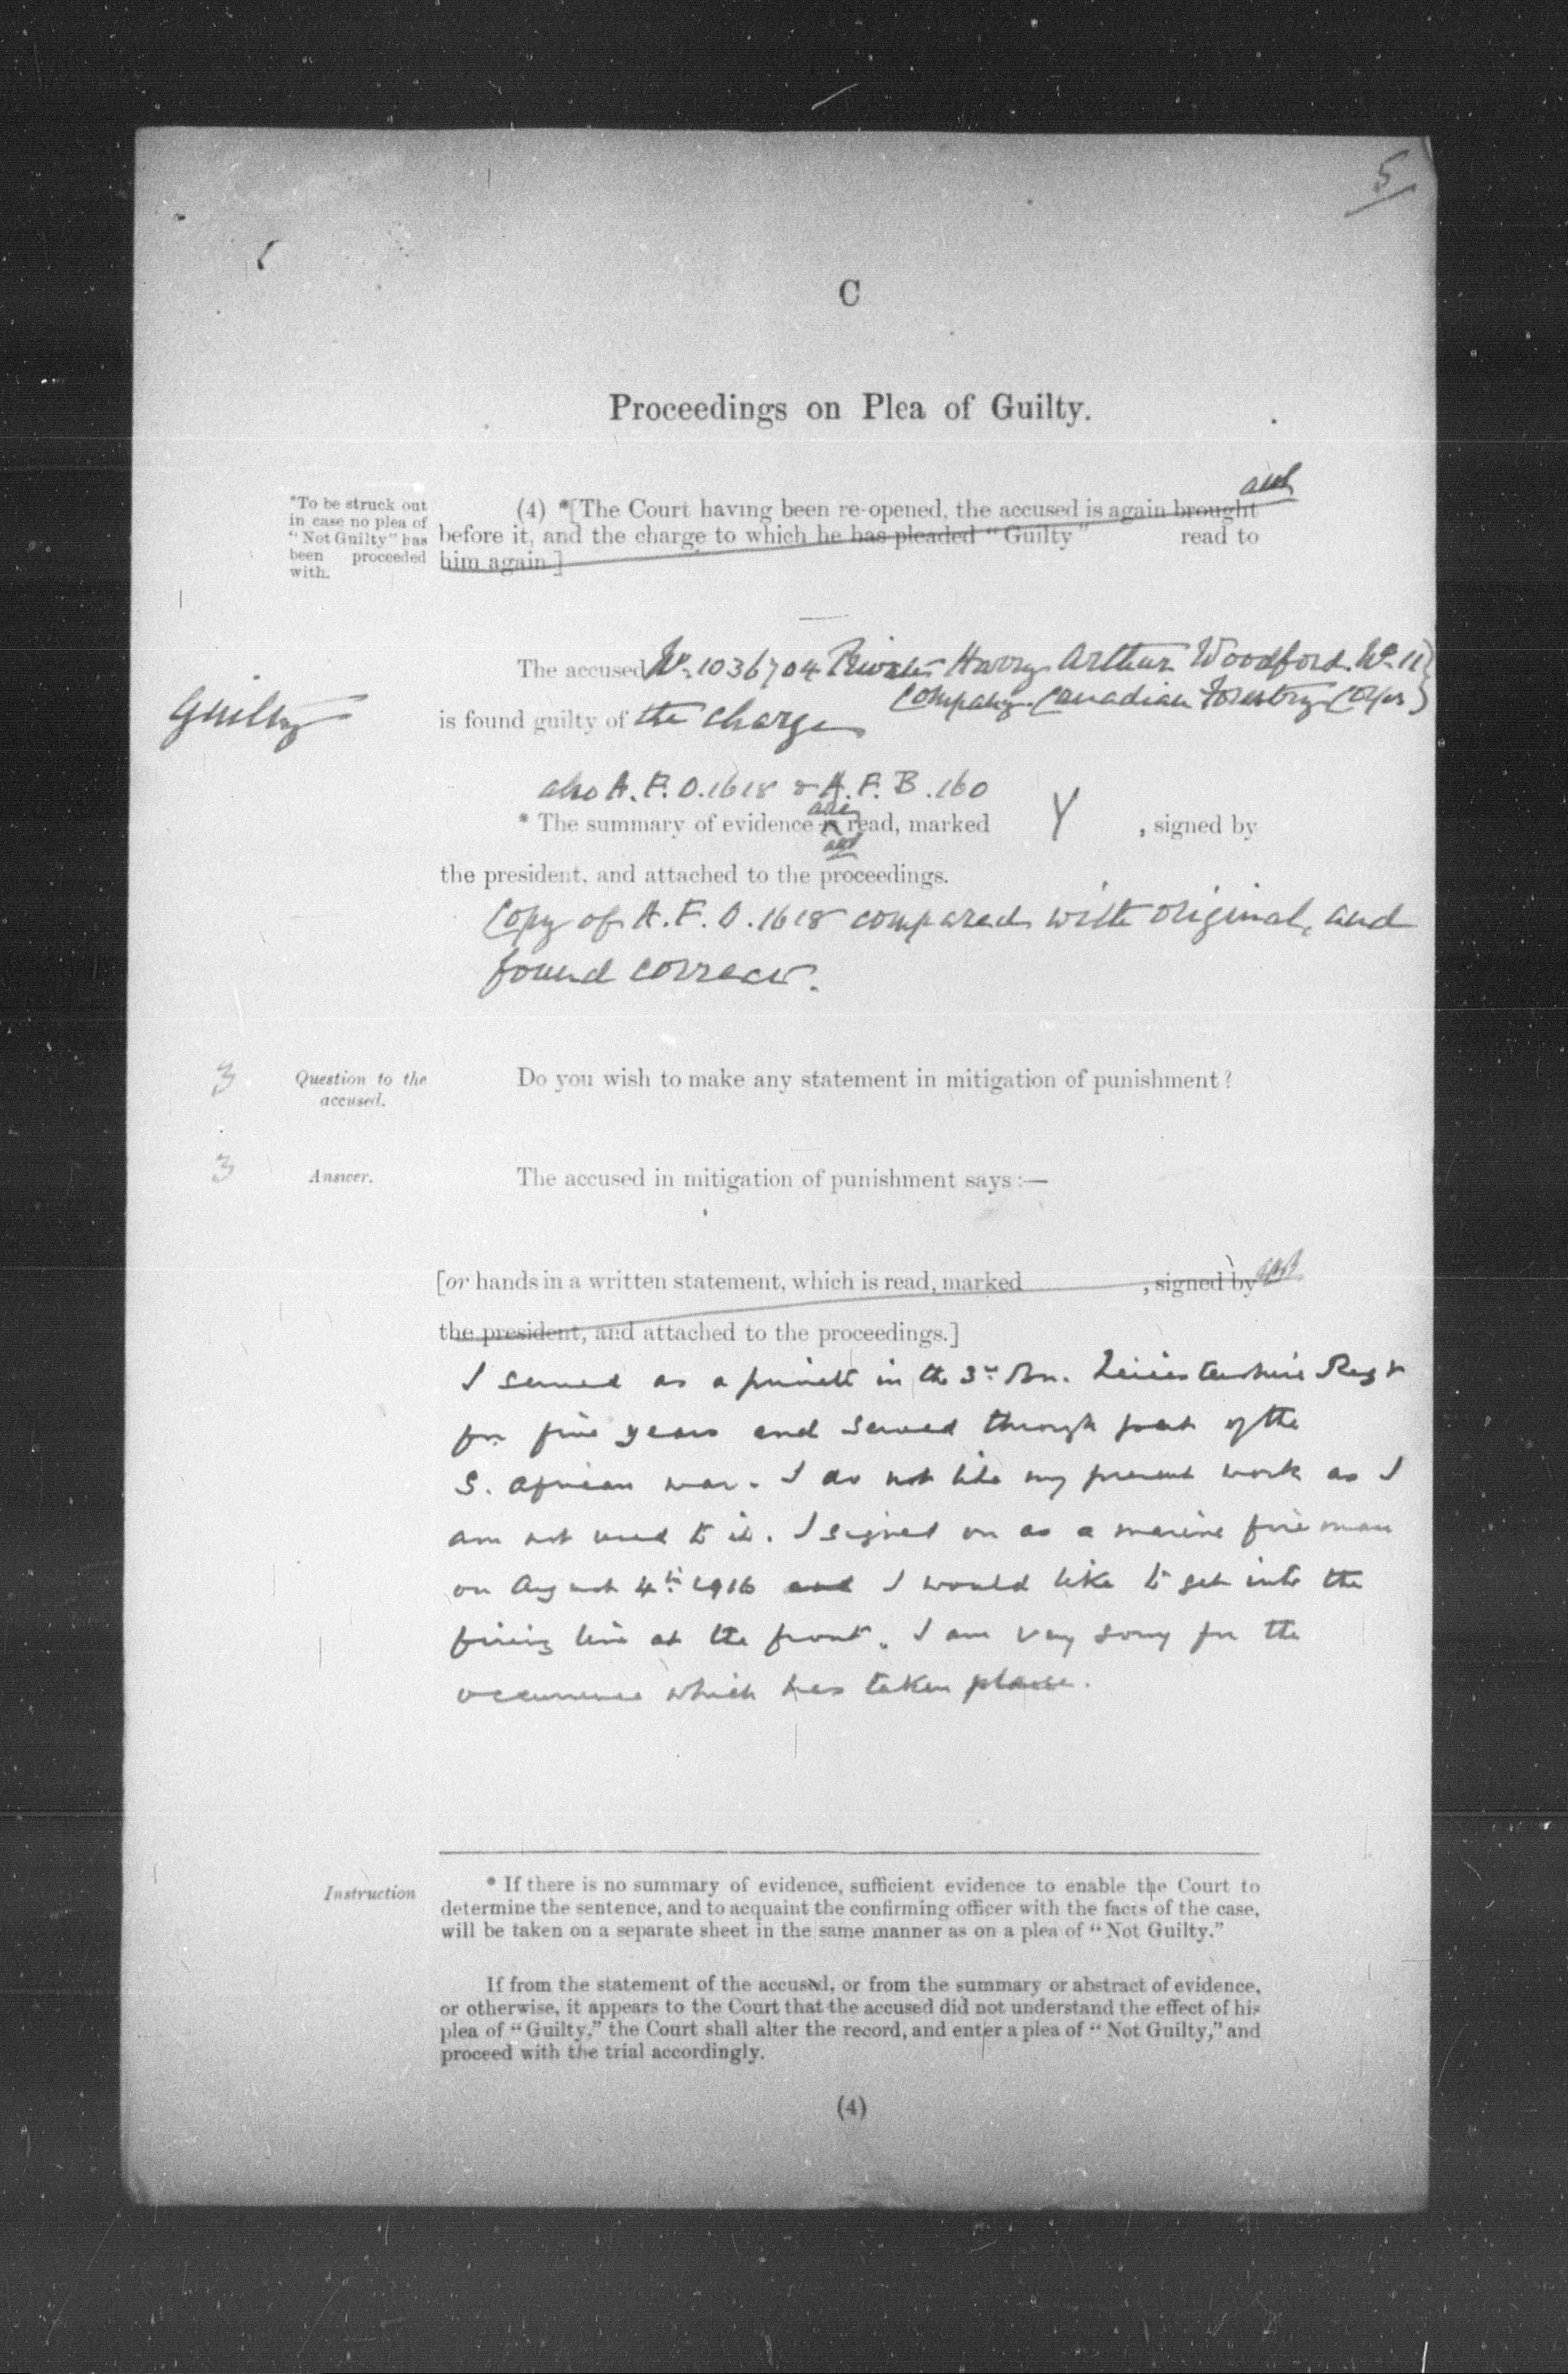 5
C
Proceedings on Plea of Guilty.
*To be struck out
in case no plea of
"Not Guilty" has
been proceeded
with.
(4) *[The Court having been re-opened, the accused is again brought
before it, and the charge to which he has pleaded "Guilty" read to
him again.]
The accused No. 1036704 Private Harry Arthur Woodford. No. 11
Company. Canadian Forestry Corps
Guilty
is found guilty of the charge
also A.F.O.1618 & A.F.B.160
are
* The summary of evidence is read, marked Y , signed by
the president, and attached to the proceedings.
Copy of A.F.O.1618 compared with original, and
found correct.
3
Question to the
accused.
Do you wish to make any statement in mitigation of punishment?
3
Answer.
The accused in mitigation of punishment says:—
[or hands in a written statement, which is read, marked , signed by
the president, and attached to the proceedings.]
I served as a private in the 3rd Bn. Leicestershire Regt
for five years and served through part of the
S. African war. I do not like my present work as I
am not used to it. I signed on as a marine fireman
on August 4th 1916 and I would like to get into the
firing line at the front. I am very sorry for the
occurrence which has taken place.
Instruction
* If there is no summary of evidence, sufficient evidence to enable the Court to
determine the sentence, and to acquaint the confirming officer with the facts of the case,
will be taken on a separate sheet in the same manner as on a plea of "Not Guilty."
If from the statement of the accused, or from the summary or abstract of evidence,
or otherwise, it appears to the Court that the accused did not understand the effect of his
plea of "Guilty," the Court shall alter the record, and enter a plea of "Not Guilty," and
proceed with the trial accordingly.
(4)